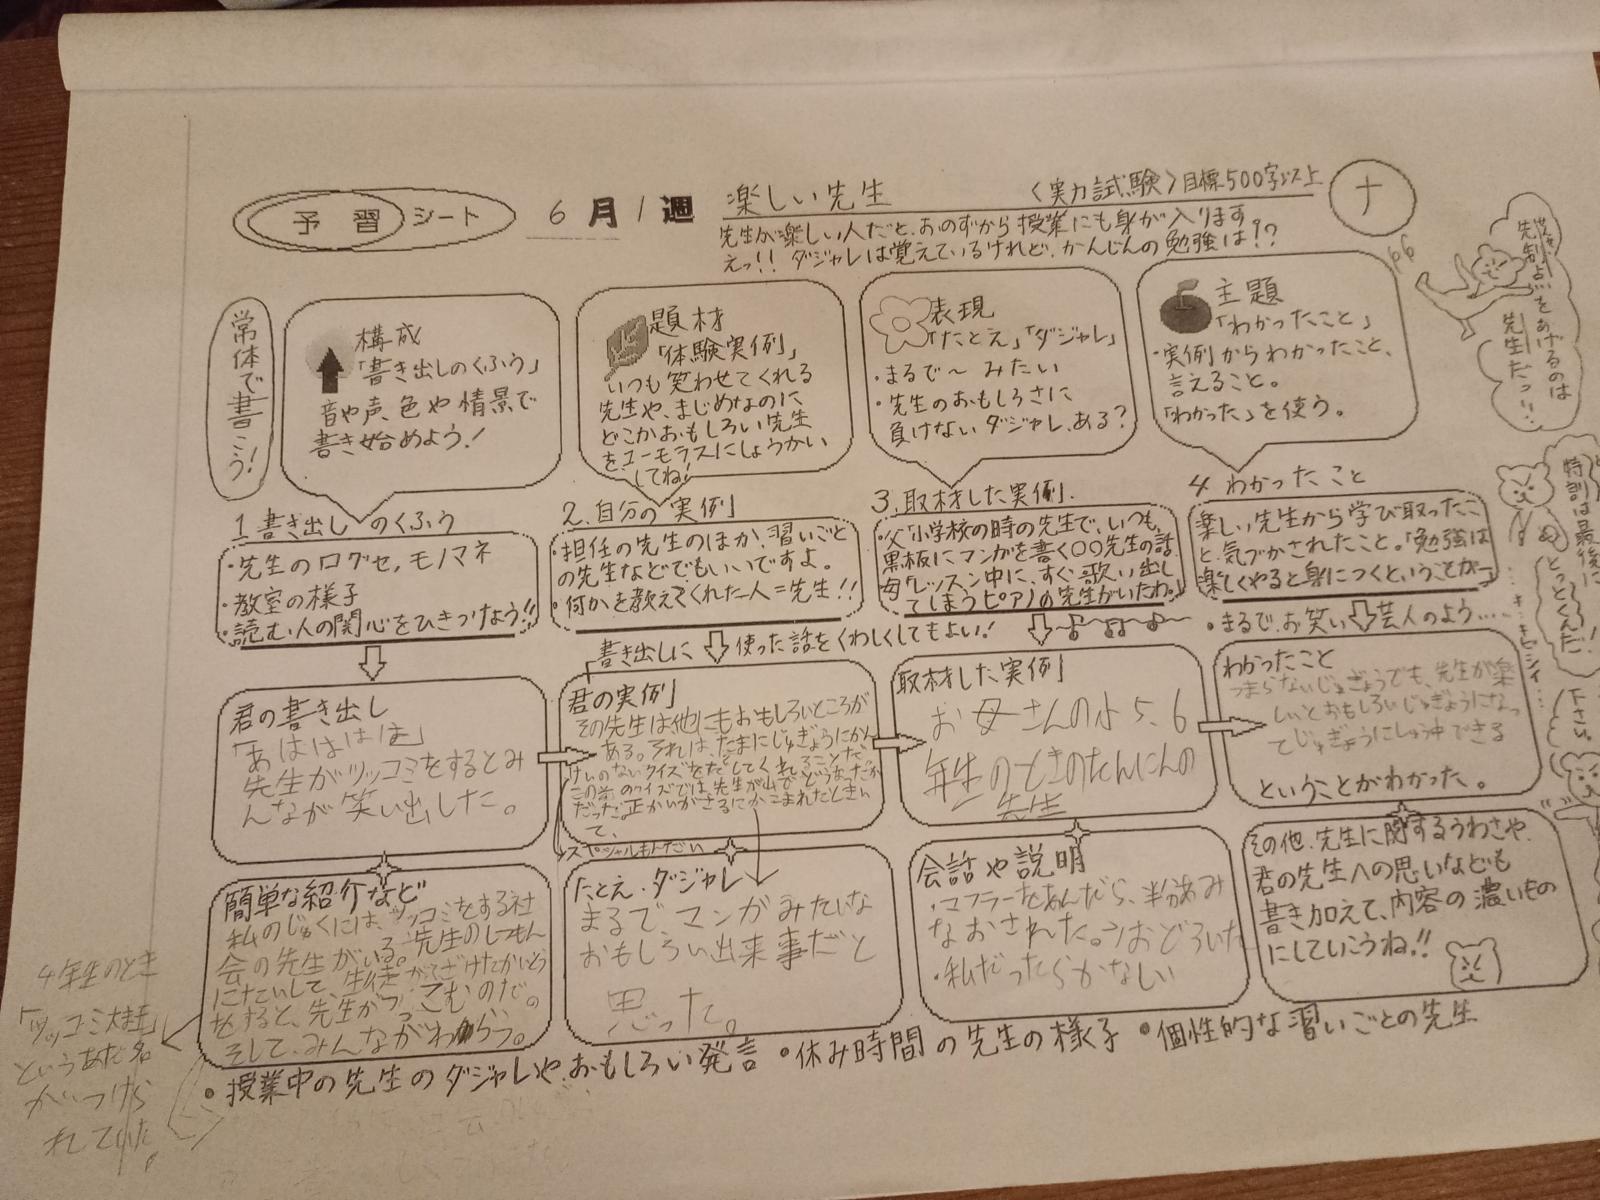 予習シート 6月1週 楽しい先生 〈実力試験〉目標500字以上 ナ
先生が楽しい人だと、おのずから授業にも身が入ります
えっ!! ダジャレは覚えているけれど、かんじんの勉強は!?
常体で書こう!
構成
「書き出しのくふう」
音や声、色や情景で
書き始めよう!
題材
「体験実例」
いつも笑わせてくれる
先生や、まじめなのに
どこかおもしろい先生
をユーモラスにしょうかい
してね!
表現
「たとえ」「ダジャレ」
・まるで〜みたい
・先生のおもしろさに
負けないダジャレ、ある?
主題
「わかったこと」
・実例からわかったこと、
言えること。
「わかった」を使う。
先制点をあげるのは
先生だっ!!
1.書き出しのくふう
・先生の口グセ、モノマネ
・教室の様子
・読む人の関心をひきつけよう!!
2.自分の実例
・担任の先生のほか、習いごと
の先生などでもいいですよ。
・何かを教えてくれた人=先生!!
3.取材した実例.
・父「小学校の時の先生で、いつも、
黒板にマンガを書く〇〇先生の話
母「レッスン中に、すぐ歌い出し
てしまうピアノの先生がいたわ。
4.わかったこと
楽しい先生から学び取ったこ
と、気づかされたこと。「勉強は
楽しくやると身につくということが…
特訓は最後に
とっとくんだ!
書き出しに使った話をくわしくしてもよい!
・まるで、お笑い芸人のよう....
君の書き出し
「あはははは」
先生がツッコミをするとみ
んなが笑い出した。
君の実例
その先生は他にもおもしろいところが
ある。それは、たまにじゅぎょうにかん
けいのないクイズをだしてくれることだ
この前のクイズでは、先生が山で
て、
取材した実例
お母さんの小5、6
年生のときのたんにんの
先生
わかったこと
つまらないじゅぎょうでも、先生が楽
しいとおもしろいじゅぎょうになっ
てじゅぎょうにしゅう中できる
ということがわかった。
下さい。
簡単な紹介など
私のじゅくには、ツッコミをする社
会の先生がいる。先生のしつもん
にたいして、生徒がふざけたかいとう
をすると、先生がつっこむのだ。
そして、みんながわらう。
たとえ・ダジャレ
まるで、マンガみたいな
おもしろい出来事だと
思った。
会話や説明
・マフラーをあんだら、半分あみ
なおされた。おどろいた
・私だったらかなしい
その他、先生に関するうわさや、
君の先生への思いなども
書き加えて、内容の濃いもの
にしていこうね!!
4年生のとき
「ツッコミ大王」
というあだ名
がつけら
れていた。
・授業中の先生のダジャレや、おもしろい発言 ・休み時間の先生の様子 ・個性的な習いごとの先生